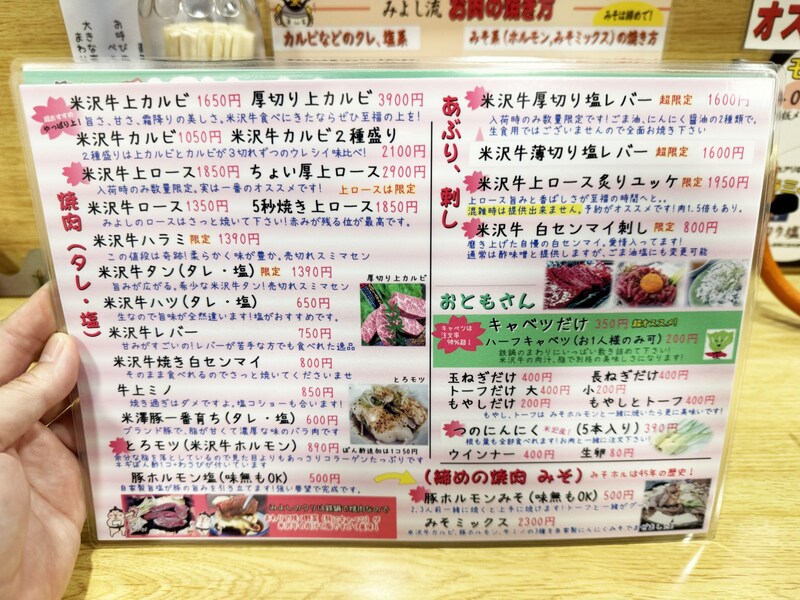 みよし流 お肉の焼き方
みそは締めで！
カルビなどのタレ、塩系
みそ系（ホルモン、みそミックス）の焼き方
焼肉（タレ・塩）
米沢牛上カルビ 1650円 厚切り上カルビ 3900円
旨さ、甘さ、霜降りの美しさ。米沢牛食べにきたならぜひ至福の上を！
米沢牛カルビ1050円 米沢牛カルビ2種盛り
2種盛りは上カルビとカルビが3切れずつのウレシイ味比べ！ 2100円
米沢牛上ロース1850円 ちょい厚上ロース2900円
入荷時のみ数量限定。実は一番のオススメです！ 上ロースは限定
米沢牛ロース1350円 5秒焼き上ロース1850円
みよしのロースはさっと焼いて下さい！赤みが残る位が最高です。
米沢牛ハラミ 限定 1390円
この値段は奇跡！柔らかく味が豊か。売切れスミマセン
米沢牛タン（タレ・塩）限定 1390円
旨みが広がる。希少な米沢牛タン！売切れスミマセン
厚切り上カルビ
米沢牛ハツ（タレ・塩） 650円
生なので旨味が全然違います！塩がおすすめです。
米沢牛レバー 750円
甘みがすごい！レバーが苦手な方でも食べれた逸品
米沢牛焼き白センマイ 800円
そのまま食べれるのでさっと焼いてくださいませ
牛上ミノ 850円
焼き過ぎはダメですよ。塩コショーも合います！
とろモツ
米澤豚一番育ち（タレ・塩） 600円
ブランド豚で、脂が甘くて濃厚な味のバラ肉です
とろモツ（米沢牛ホルモン） 890円
余分な脂を落としているので見た目よりもあっさりコラーゲンたっぷりです
ネギぽん酢1コ・わさびが付いています
ぽん酢追加は1コ50円
豚ホルモン塩（味無もOK） 500円
自家製旨塩が豚の旨みを引き立てます！強い要望で完成です。
あぶり、刺し
米沢牛厚切り塩レバー 超限定 1600円
入荷時のみ数量限定です！ごま油、にんにく醤油の2種類で。
生食用ではございませんので全面お焼き下さい
米沢牛薄切り塩レバー 超限定 1600円
米沢牛上ロース炙りユッケ 限定 1950円
上ロース旨みと香ばしさが至福の時間へと。。
混雑時は提供出来ません。予約がオススメです！肉1.5倍もあり。
米沢牛 白センマイ刺し 限定 800円
磨き上げた自慢の白センマイ。愛情入ってます！
通常は酢味噌と提供しますが、ごま油塩にも変更可能
おともさん
キャベツは注文率98％超！
キャベツだけ 350円 超オススメ！
ハーフキャベツ（お1人様のみ可）200円
鉄鍋のまわりにいっぱい敷き詰めて下さい！
米沢牛の肉汁、脂で お揃の美味しさになります！
玉ねぎだけ 400円 長ねぎだけ400円
トーフだけ 大400円 小200円
もやしだけ 200円 もやしとトーフ400円
もやし、トーフは みそホルモンと一緒に焼いたら更に美味しいです！
つのにんにく 米沢産！（5本入り）390円
根も葉も全部食べれます！お肉と一緒に注文下さい！
ウインナー 400円 生卵 80円
（締めの焼肉 みそ）みそホルは45年の歴史！
豚ホルモンみそ（味無もOK） 500円
2、3人前一緒に焼くと上手に焼けます！トーフと一緒がグー
みそミックス 2300円